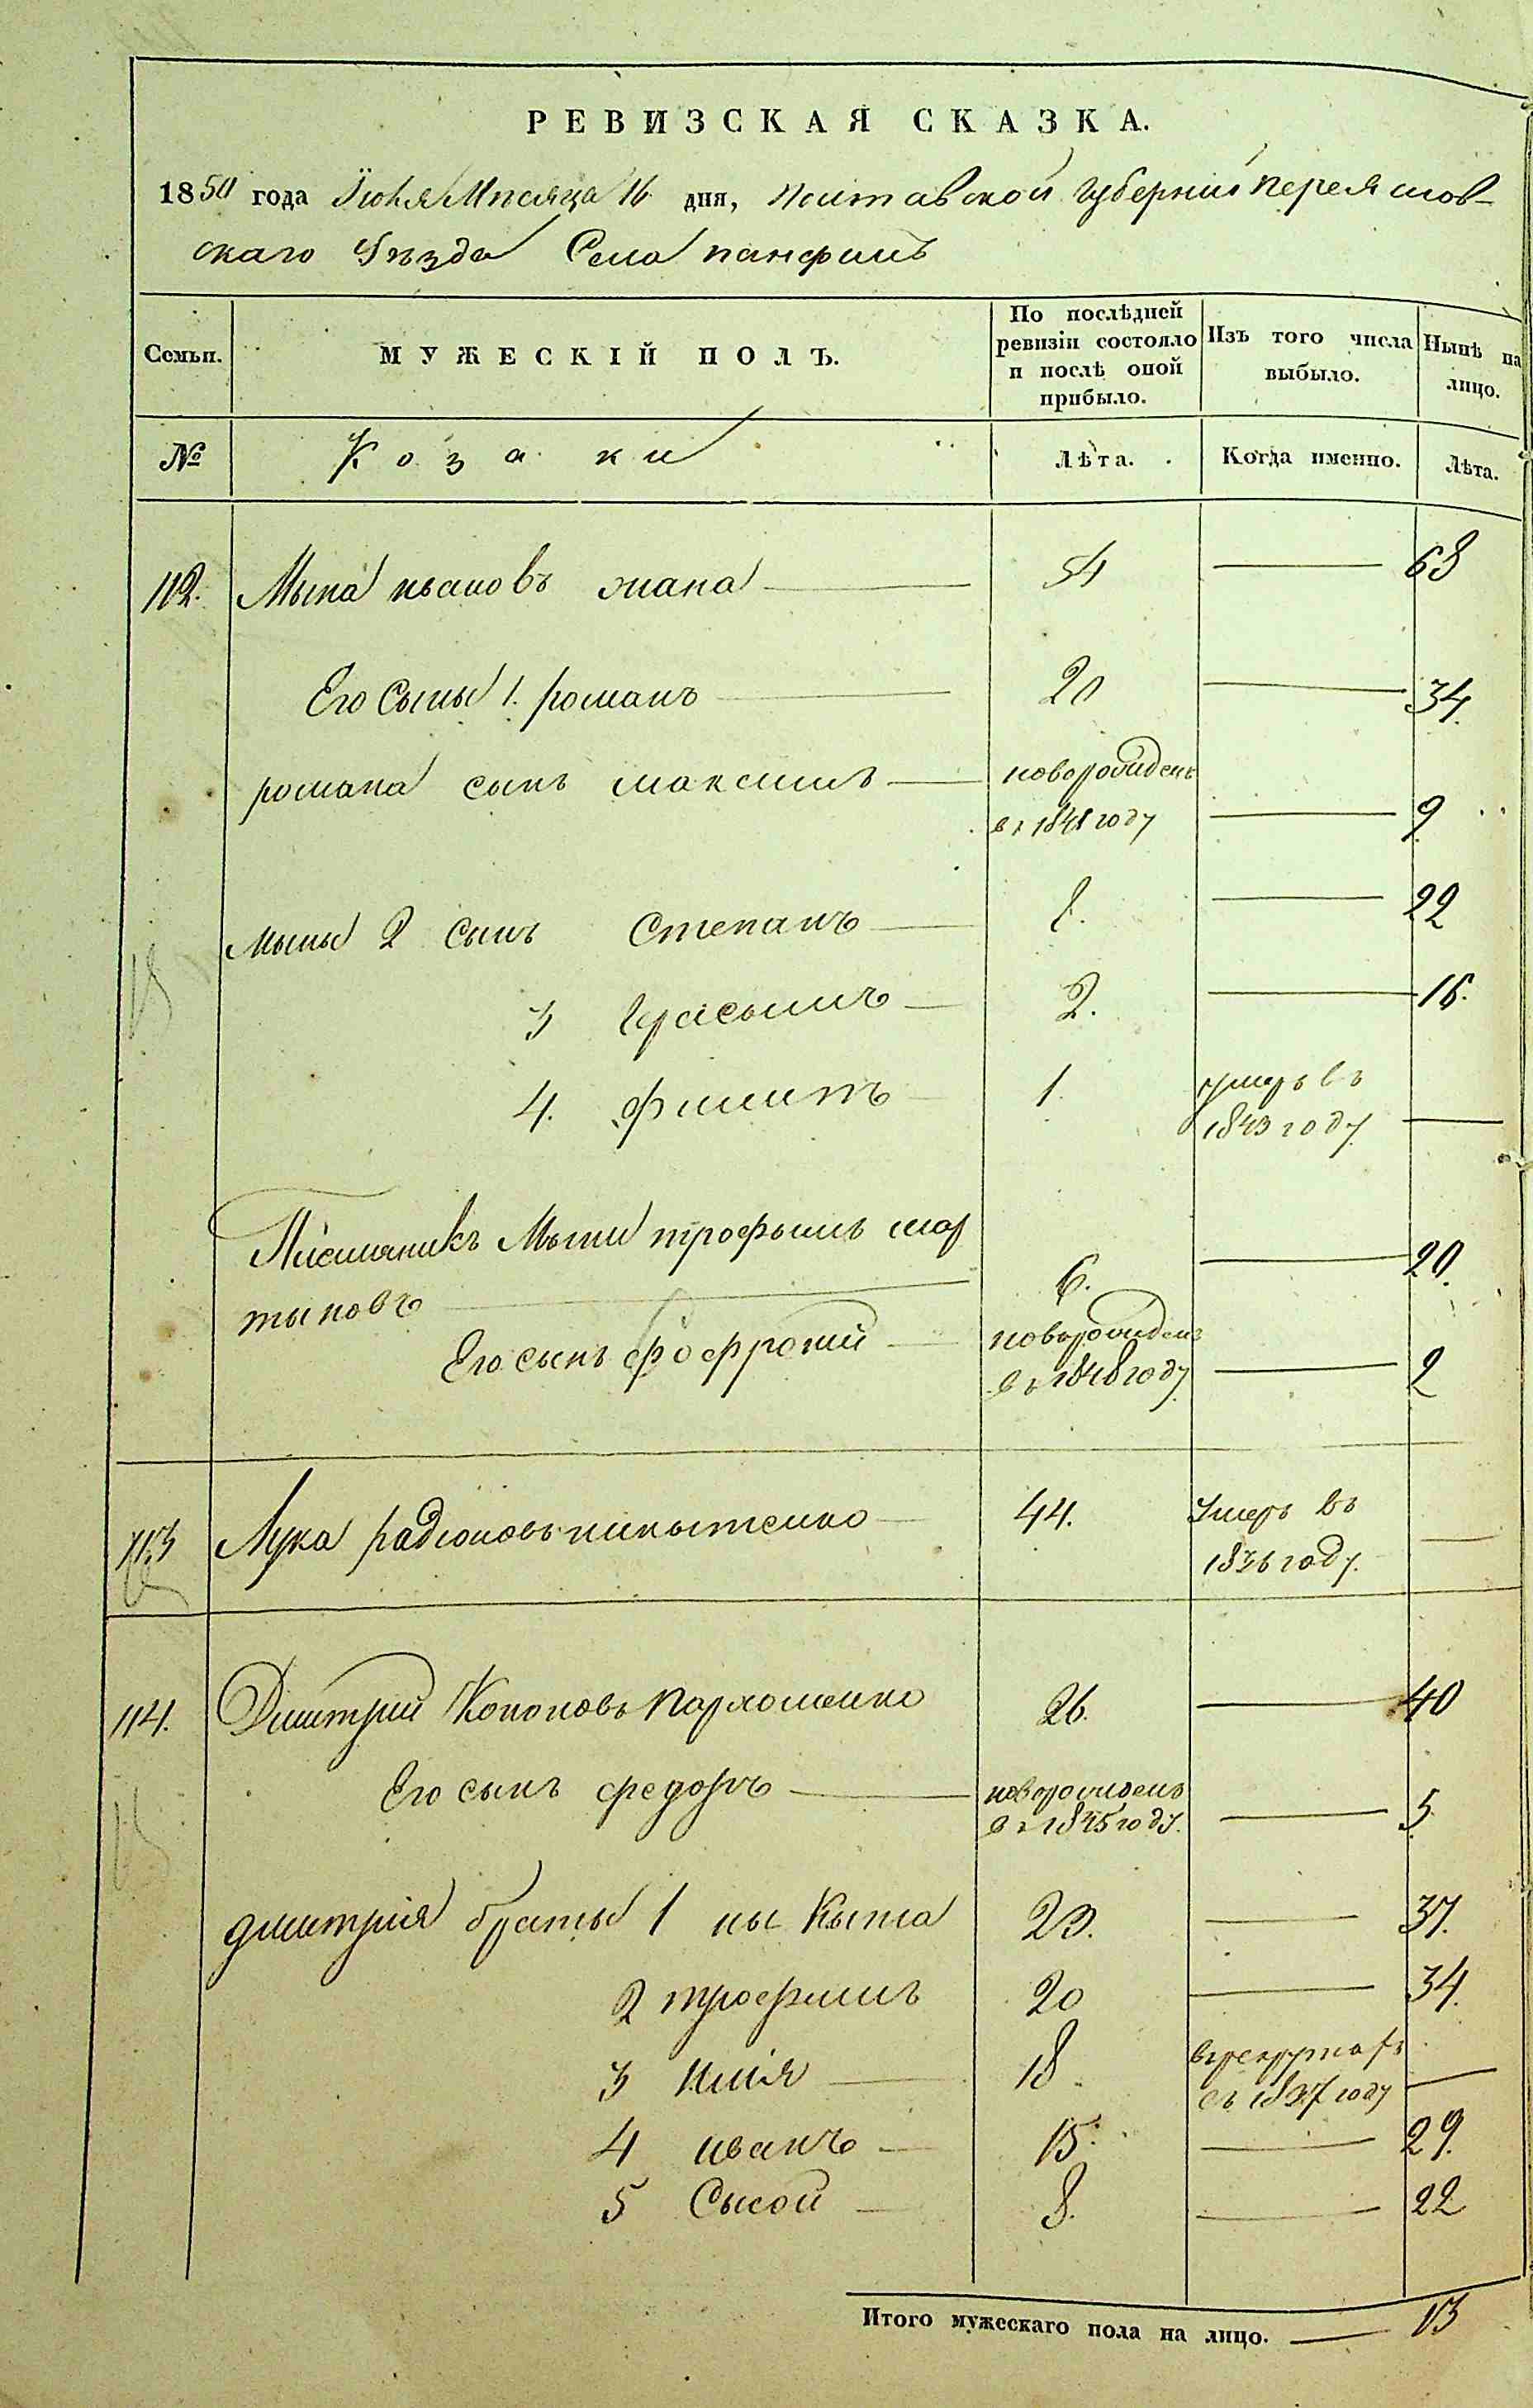 РЕВИЗСКАЯ СКАЗКА.
1850 года Июля Мѣсяца 16 дня, Полтавской губерніи Переяслов-
скаго Уѣзда Села Панфилъ
Семьи.
МУЖЕСКІЙ ПОЛЪ.
По послѣдней ревизіи состояло и послѣ оной прибыло.
Изъ того числа выбыло.
Нынѣ на лицо.
№
Козаки
Лѣта.
Когда именно.
Лѣта.
112. Мына 54 68
Его Сыны 1. романъ 20 34.
романа сынъ максимъ новорожденъ
въ 1841 году 9
мыны 2 сынъ Степанъ 8. 22
3 Герасымъ 2. 16.
4. филипъ 1. умеръ въ
1843 году
Племяникъ Мыны трофымъ мар
тыновъ 6. 20.
Его сынъ новорожденъ
въ 1848 году 2
113 Лука радіоновъ никытенко 44. Умеръ въ
1836 году.
114. Дмитрій Кононовъ пархоменко 26. 40
Его сынъ федоръ новорожденъ
въ 1845 году. 5
дмитрія браты 1 ныкыта 23. 37.
2 трофимъ 20 34.
3 илія 18 в рекрутахъ
съ 1837 году
4 иванъ 15. 29.
5 Сысой 8. 22
Итого мужескаго пола на лицо. 13